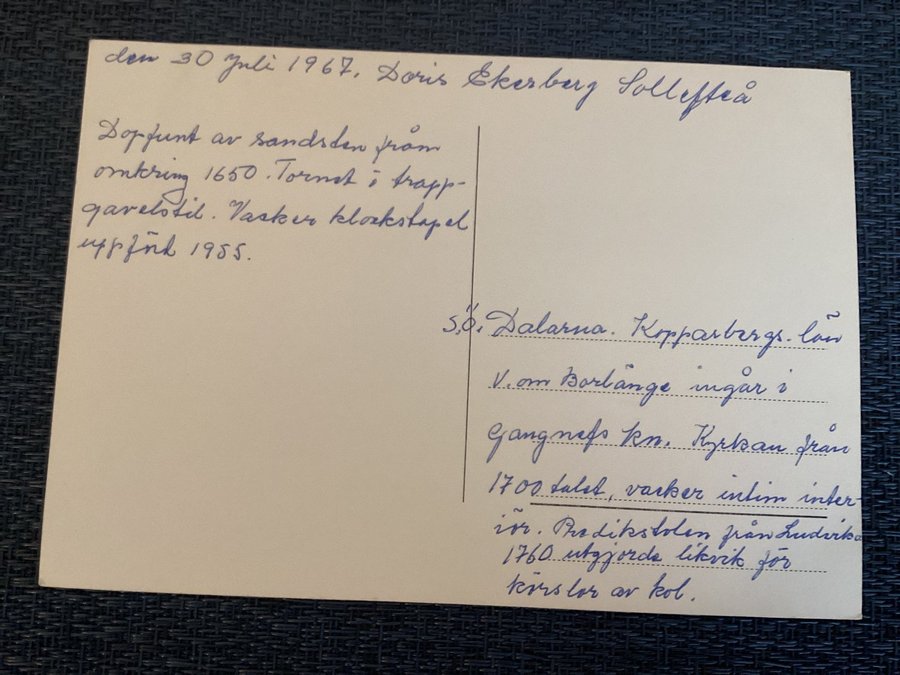 den 30 Juli 1967. Doris Ekerberg Sollefteå
Dopfunt av sandsten från
omkring 1650. Tornet i trapp-
gavelstil. Vacker klockstapel
uppförd 1955.
S.Ö. Dalarna. Kopparbergs. län
V. om Borlänge ingår i
Gangnefs kn. Kyrkan från
1700 talet, vacker intim inter-
iör. Predikstolen från Ludvika
1760 utgjorde likvik för
körslor av kol.